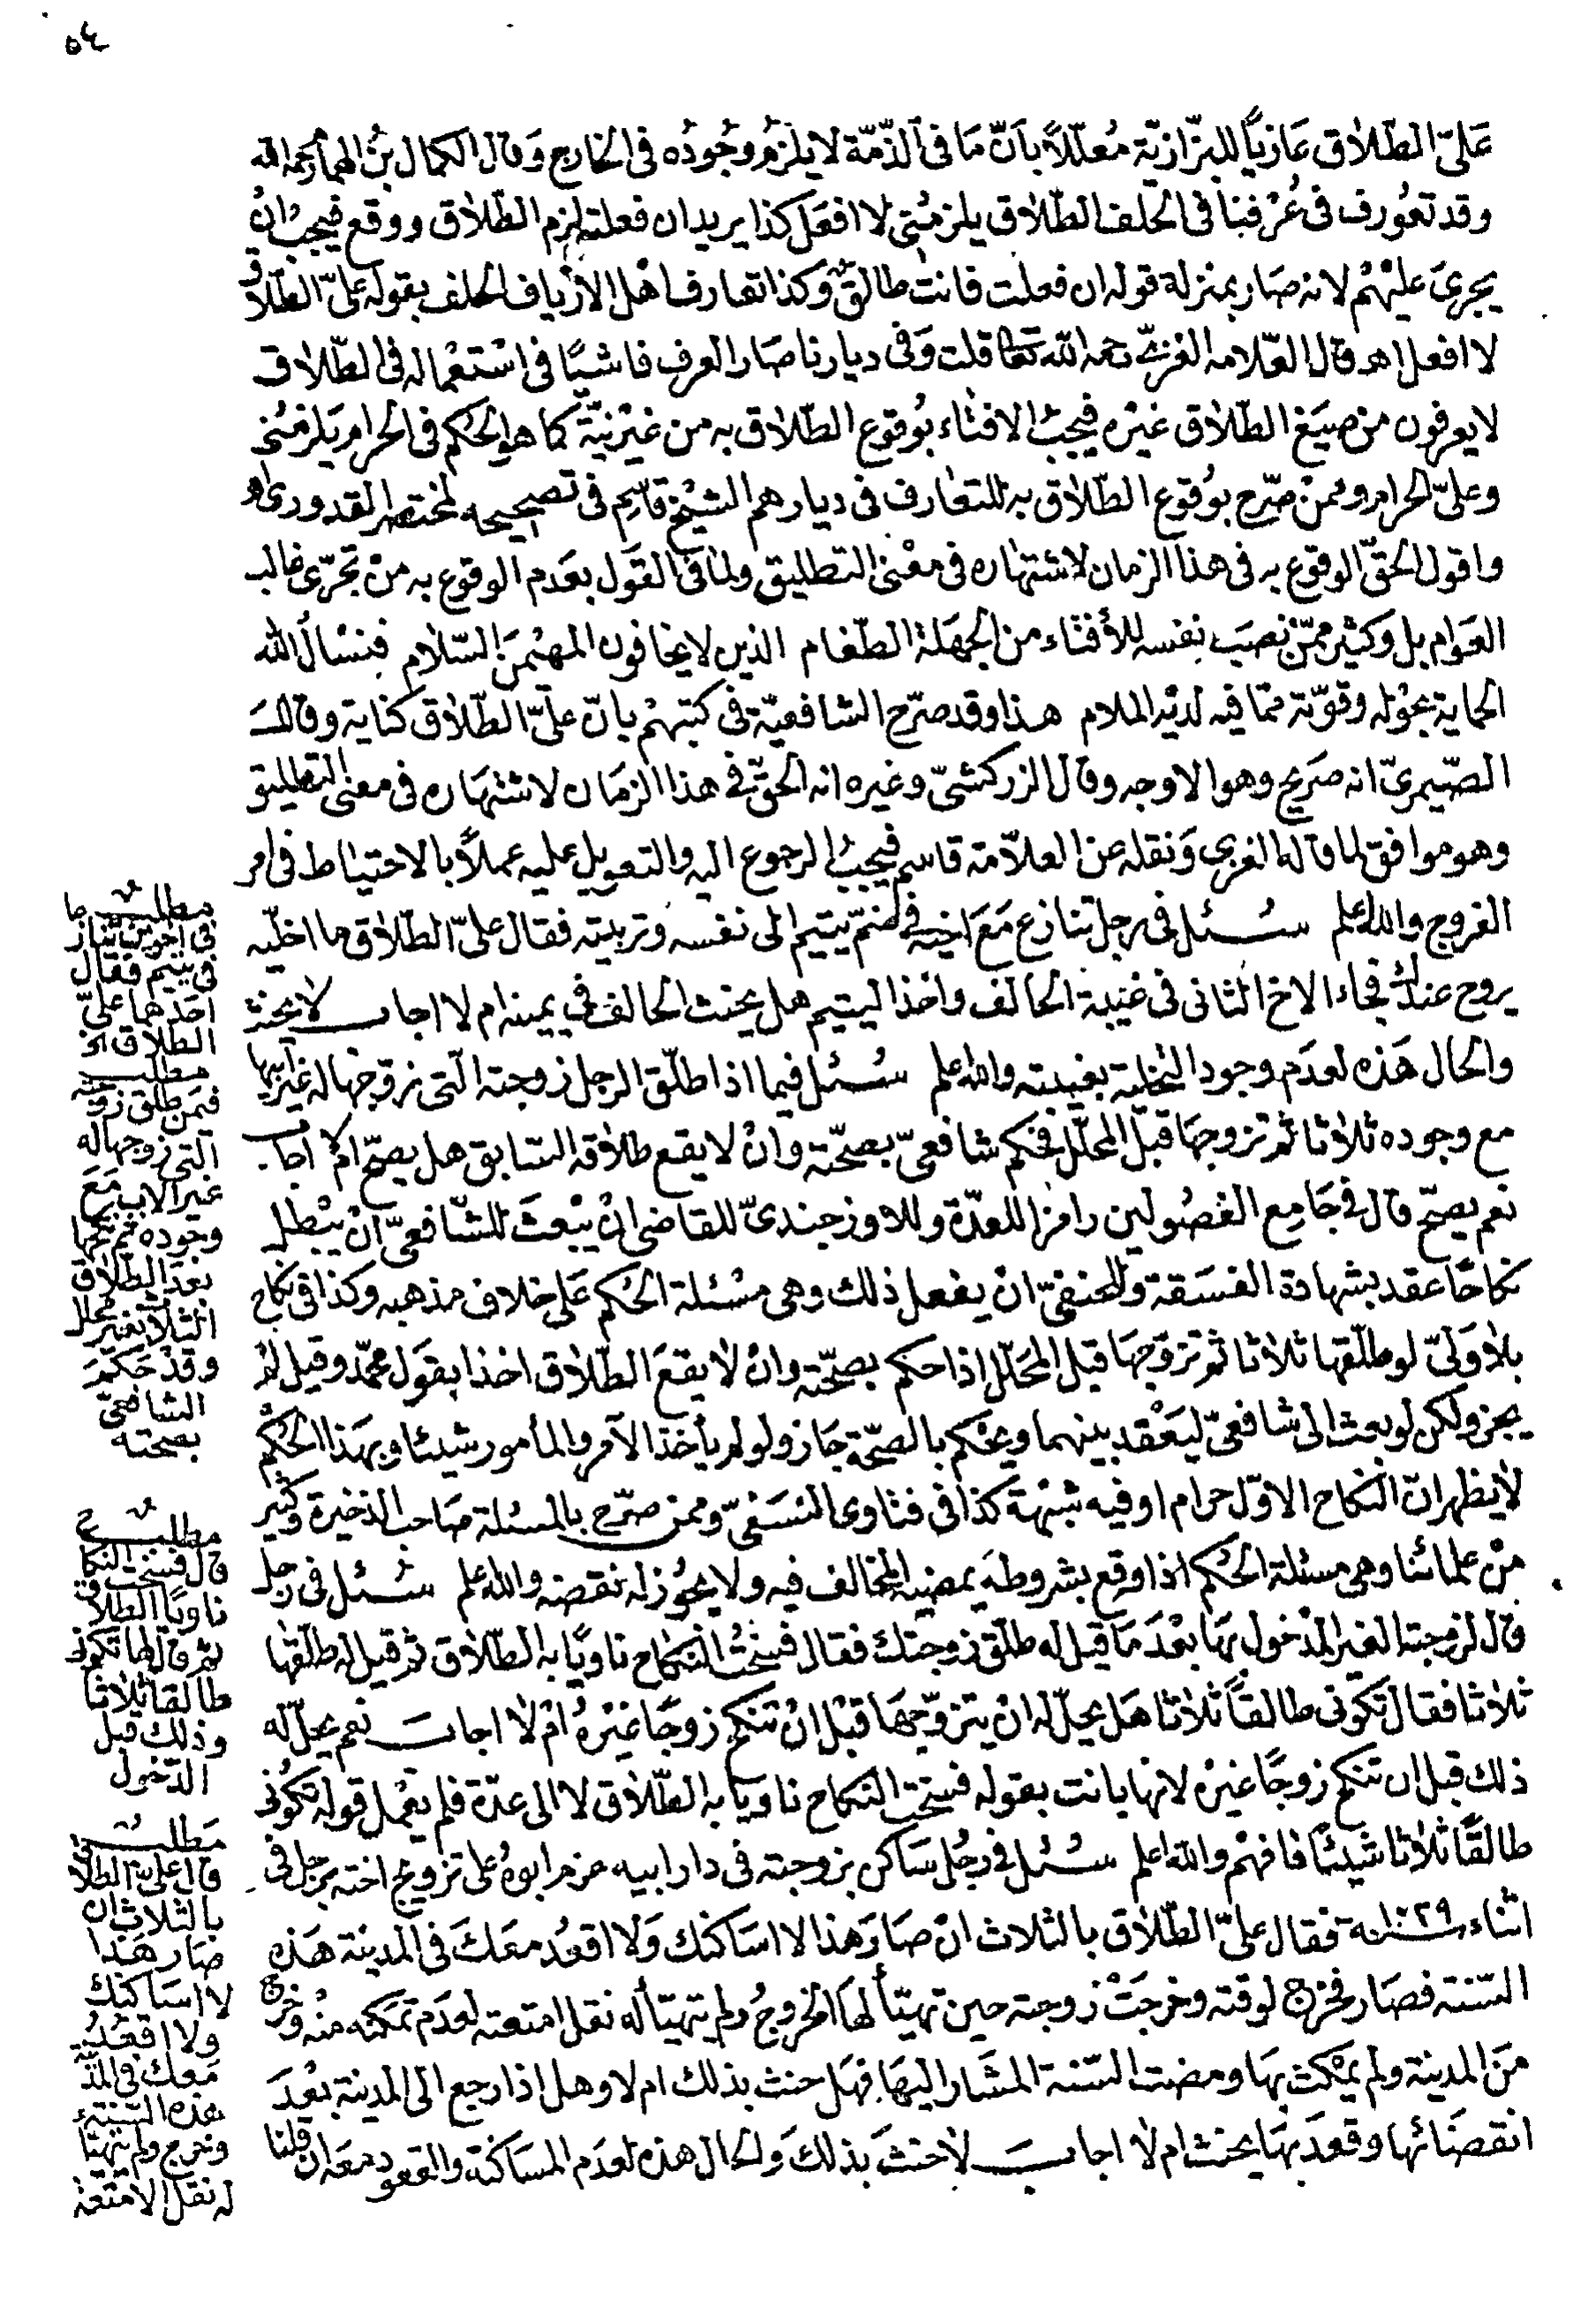 ٥٤
عَلىّ الطّلاق عَازيًا للبزّازيّة مُعلّلاً بانّ مَا فى الذّمّة لا يلزم وجُودُه فى الخارج وَقال الكمال بنُ الهمام رحمه الله
وقد تعُورف فى عُرْفنا فى الحلف الطّلاق يلزمُنى لا افعَل كذا يريد ان فعلته لزم الطّلاق ووقع فيجبُ انْ
يجرىَ عليْهمْ لانه صَار بمنزلة قوله ان فعلت فانت طالقٌ وَكذا تعارف اهْل الارْياف الحلف بقوله علىّ الطّلاق
لا افعل اهـ قال العلّامه الغزىّ رحمه الله تعَالى قلت وَفى ديارنا صَار العرف فاشيًا فى اسْتعْماله فى الطّلاق
لا يعرفون من صيَغ الطّلاق غيْره فيجبُ الافتاء بوُقوع الطّلاق به من غيْر نيّة كما هو الحكم فى الحرام يَلزمُنى
وعلىّ الحرام وممنْ صرّح بوُقوع الطّلاق به للتعَارف فى ديارهم الشيْخ قاسِم فى تصحيحه لمختصر القدورى اهـ
واقول الحقّ الوقوع به فى هذا الزمان لاشتهاره فى معْنى التطليق ولما فى القَول بعَدم الوقوع به منْ تجرّى غالب
العوَام بل وَكثير ممّنْ نصَب نفسه للأفتاء من الجهَلة الطّغام الذين لا يخافون المهيْمنَ السّلام فنسْأل الله
الحماية بحوْله وقوّته ممّا فيه لديْه الملام هذا وقد صرّح الشافعيّة فى كتبهمْ بانّ علىّ الطّلاق كناية وقالَ
الصّيمرىّ انه صَريح وهو الاوجه وقال الزركشىّ وغيره انه الحقّ فى هذا الزمَان لاشتهَاره فى معنى التطليق
وهو موافق لما قاله الغزى وَنقله عن العلّامة قاسم فيجبُ الرجوع اليه والتعويل عليه عملاً بالاحتيَاط فى امر
الفروج والله اعلم سُئل فى رجل تنازع مَعَ اخيه فى ضمّ يتيم الى نفسه وتربيته فقال علىّ الطّلاق ما اخلّيه
يروح عندك فجاء الاخ الثانى فى غيْبة الحالف واخذ اليتيم هل يحنث الحالف فى يمينه ام لا اجاب لا يحنث
والحال هَذه لعدَم وجود التخلية بغيبته والله اعلم سُئل فيما اذا طلّق الرجل زوجته الّتى زوّجهَا له غيْر ابيها
مع وجوده ثلاثا ثم تزوجهَا قبل المحلّل فحكم شافعىّ بصحّته وانْ لا يقع طلاقه السّابق هل يصحّ ام لا اجاب
نعم يصحّ قال فى جَامع الفصُولين رامزا للعدّة وللاوزجندىّ للقاضى انْ يبْعث للشّافعىّ انْ يبْطل
نكاحًا عقد بشهادة الفسَقة وللحنفىّ انْ يفعل ذلك وهى مسْئلة الحُكم عَلى خلاف مذهبه وكذا فى نكاح
بلا وَلىّ لو طلّقها ثلاثا ثم تزوّجهَا قبل المحَلّل اذا حكم بصحّته وانْ لا يقعَ الطّلاق اخذا بقوَل محمّد وقيل لمْ
يجز ولكن لو بعث الى شافعىّ ليَعْقد بينهما ويحكم بالصحّة جَاز ولو لم يأخذ الآمر والمأمور شيئا وبهَذا الحُكْم
لا يظهر انّ النكاح الاوّل حرام او فيه شبْهة كذا فى فتاوى النسَفىّ وممن صرّح بالمسئلة صَاحب الذخيرة وكثير
منْ علمائنا وهى مسئلة الحُكم اذا وقع بشروطه يمضيه المخالف فيه ولا يجوُز له نقضه والله اعلم سُئل فى رجل
قال لزوجته الغير المدْخول بهَا بعْدَ مَا قيل له طلّق زوجتك فقال فسختُ النكاح ناويًا به الطّلاق ثم قيل له طلّقها
ثلاثا فقال تكونى طالقاً ثلاثا هَل يحلّ له انْ يتزوّجهَا قبْل انْ تنكح زوجًا غيْرهُ امْ لا اجابَ نعم يحلّ له
ذلك قبل ان تنكح زوجًا غيْره لانها بانت بقوله فسخت النكاح ناويا به الطّلاق لا الى عدّة فلم يعْمل قوله تكُونى
طالقاً ثلاثا شيئا فافهمْ والله اعلم سُئل فى رجُل سَاكن بزوجته فى دار ابيه عزم ابوهُ على تزويج اخته برجل فى
اثناء سنة ١٠٢٩ فقال علىّ الطّلاق بالثلاث انْ صَارَ هذا لا اسَاكنك وَلا اقعُد معَكَ فى المدينة هَذه
السّنة فصَار فخرج لوقته وخرجَتْ زوجته حين تهيّأ لهَا الخروجُ ولم يتهيّأ له نقل امتعته لعدَم تمكنه منْه وخرج
منَ المدينة ولم يمْكث بهَا ومضت السّنة المشَار اليهَا فهَل حنث بذلك ام لا وهل اذا رجع الى المدينة بعْدَ
انقضَائها وقعدَ بهَا يحنث ام لا اجابَ لا حنثَ بذلكَ وَالحال هذه لعدَم المسَاكنة والقعود معَه ان قلنا
مطلب
فى اخوين تنازعا
فى يتيم فقال
احَدهما علىّ
الطلاق الخ
مطلب
فيمَن طلق زوجته
التى زوجها له
غير الاب مَعَ
وجوده ثم نكحها
بعدَ الطلاق
الثلاث بغير محلل
وقدْ حَكمَ
الشافعىّ
بصحته
مطلب
قال فسخت النكاح
ناويًا الطلاق
ثم قال لها تكونى
طالقا ثلاثا
وذلك قبل
الدّخول
مَطلب
قال علىّ الطلاق
بالثلاث ان
صَار هَذا
لا اسَاكنك
ولا اقعُدُ
مَعك فى المدينة
هذه السّنة
وخرج ولم يتهيّأ
له نقل الامتعة